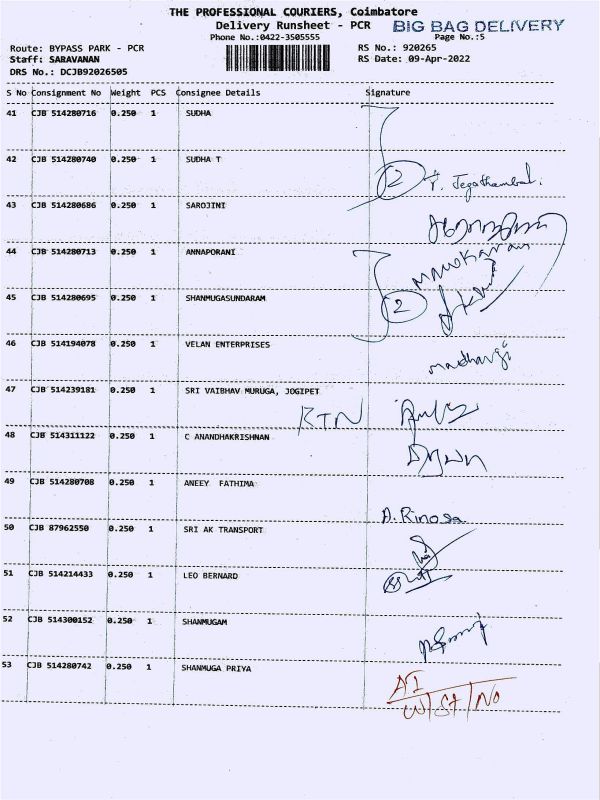 THE PROFESSIONAL COURIERS, Coimbatore
Delivery Runsheet - PCR
BIG BAG DELIVERY
Phone No.:0422-3505555
Page No.:5
Route: BYPASS PARK - PCR
RS No.: 920265
Staff: SARAVANAN
RS Date: 09-Apr-2022
DRS No.: DCJB92026505
S No Consignment No Weight PCS Consignee Details Signature
41 CJB 514280716 0.250 1 SUDHA
42 CJB 514280740 0.250 1 SUDHA T
2 T. Jegathambal.
43 CJB 514280686 0.250 1 SAROJINI
44 CJB 514280713 0.250 1 ANNAPORANI
MANOKARAN
45 CJB 514280695 0.250 1 SHANMUGASUNDARAM
2
46 CJB 514194078 0.250 1 VELAN ENTERPRISES
47 CJB 514239181 0.250 1 SRI VAIBHAV MURUGA, JOGIPET
RTN
48 CJB 514311122 0.250 1 C ANANDHAKRISHNAN
49 CJB 514280708 0.250 1 ANEEY FATHIMA
A. Rinosa
50 CJB 87962550 0.250 1 SRI AK TRANSPORT
51 CJB 514214433 0.250 1 LEO BERNARD
52 CJB 514300152 0.250 1 SHANMUGAM
53 CJB 514280742 0.250 1 SHANMUGA PRIYA